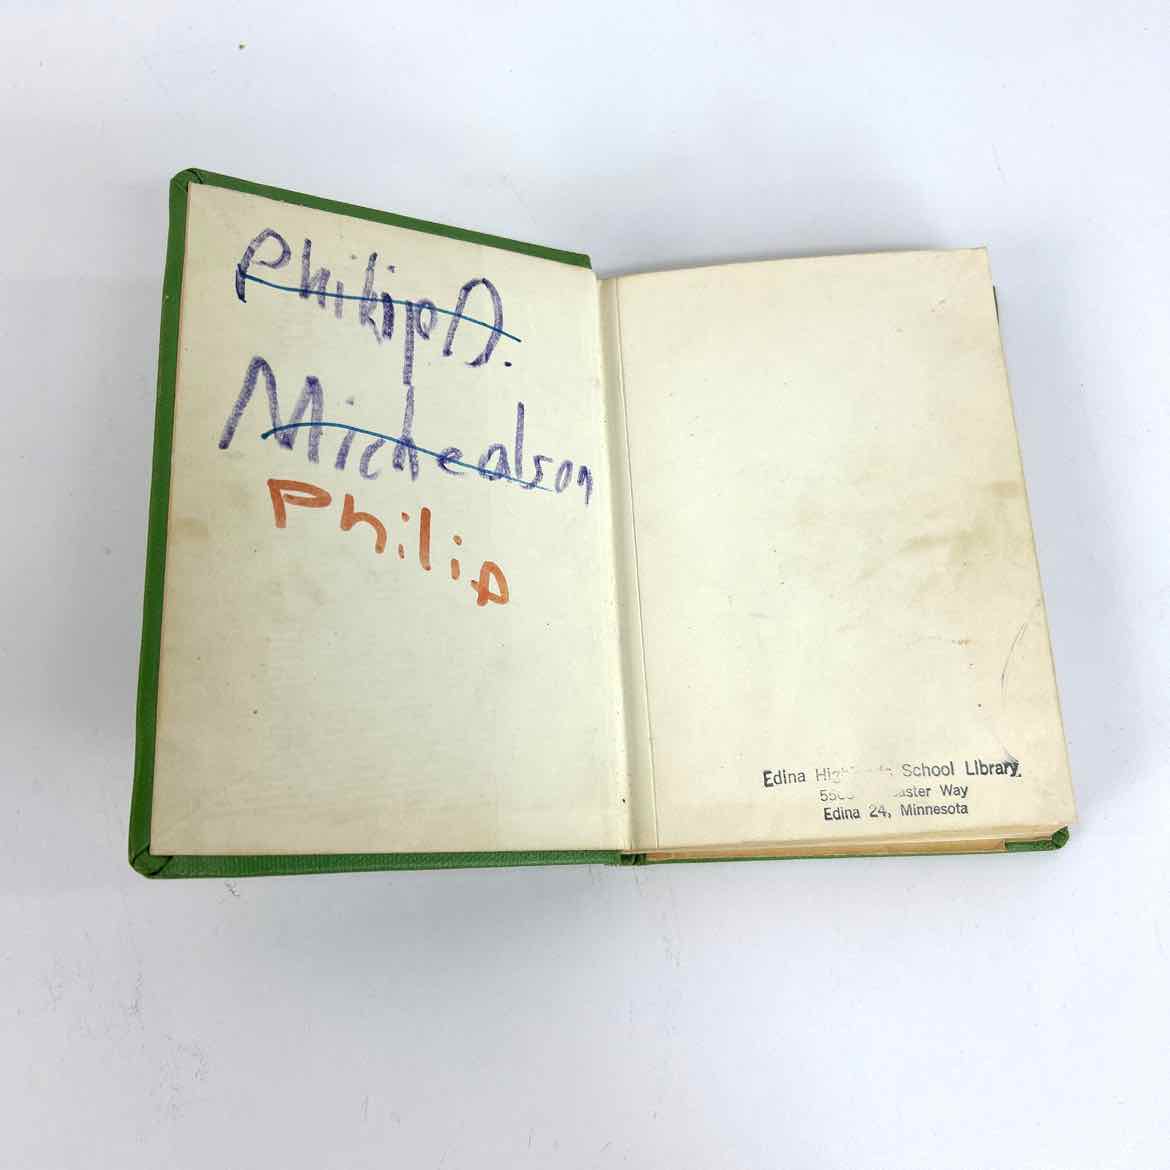 Philip A.
Michealson
Philip
Edina School Library
Way
Edina 24, Minnesota